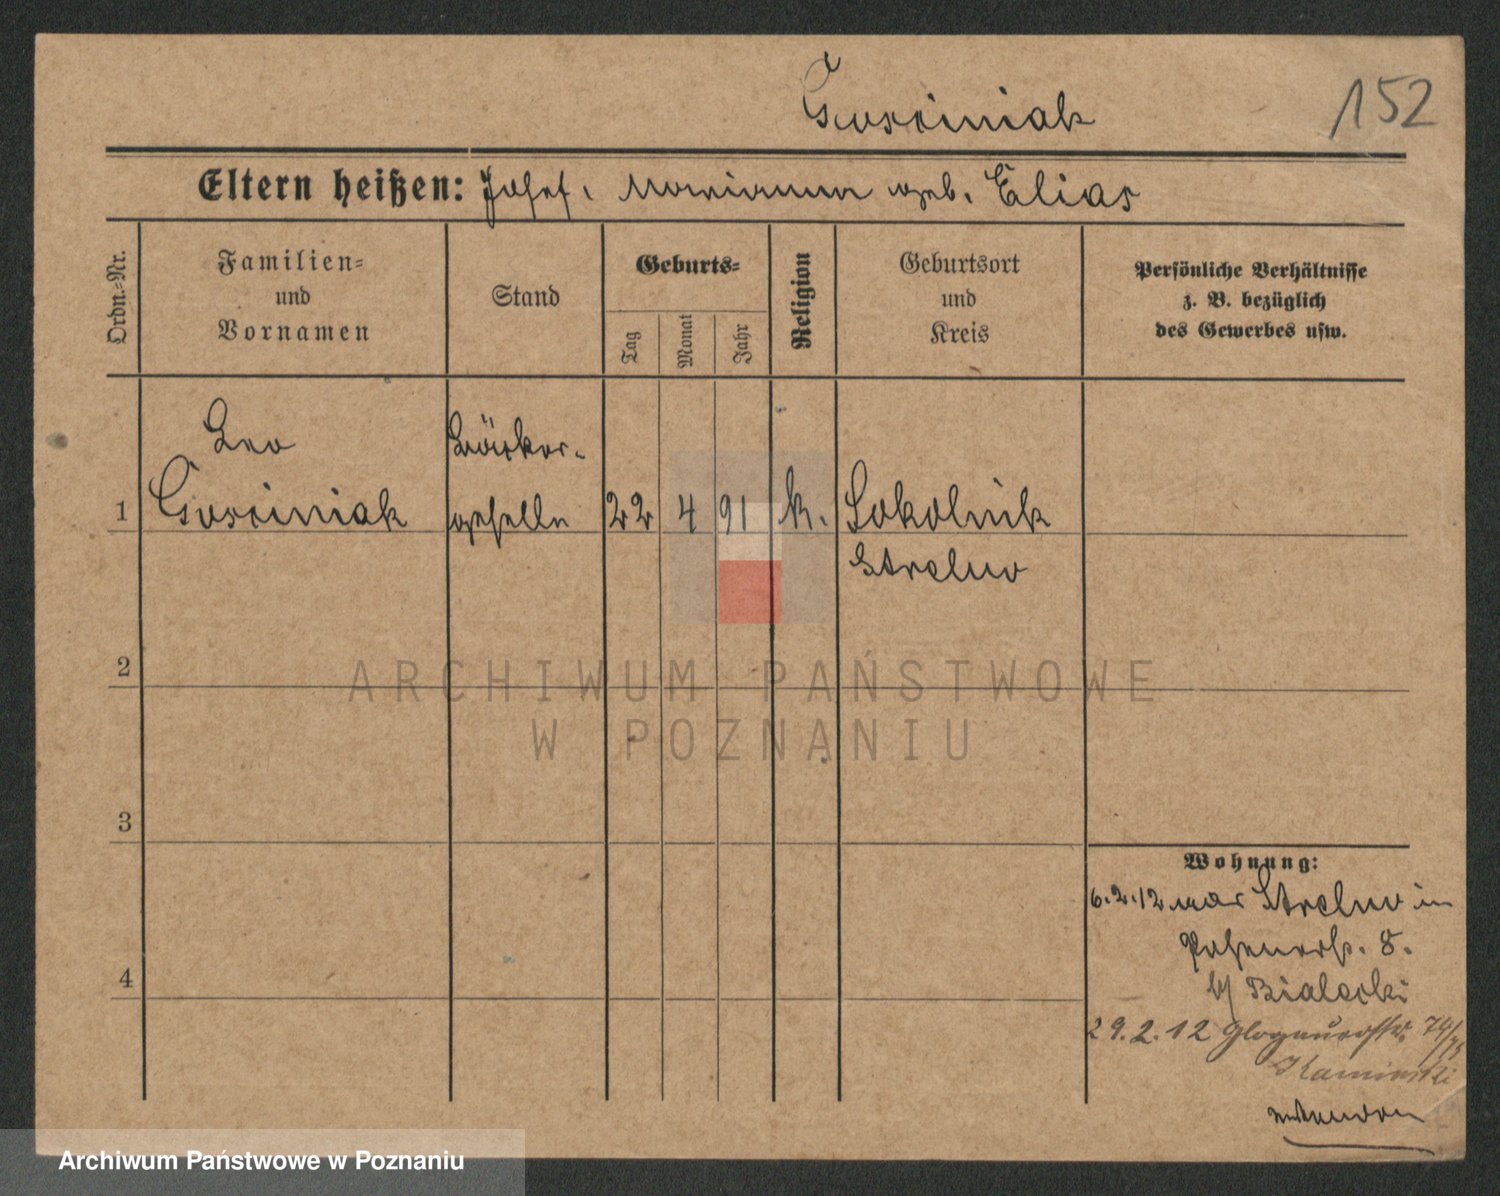 Gosciniak
152
Eltern heißen: Josef, Marianna geb. Elias
Ordn.-Nr.
Familien-
und
Vornamen
Stand
Geburts-
Tag
Monat
Jahr
Religion
Geburtsort
und
Kreis
Persönliche Verhältnisse
z. B. bezüglich
des Gewerbes usw.
Leo
Bäcker-
1 Gosciniak geselle 22 4 91 k. Sokolnik
Strelno
2
ARCHIWUM PAŃSTWOWE
W POZNANIU
3
Wohnung:
6.2.12 aus Strelno in
Posenerstr. 8.
b/ Bialecki
4
29.2.12 Glogauerstr. 74/75
Kaminski
Archiwum Państwowe w Poznaniu